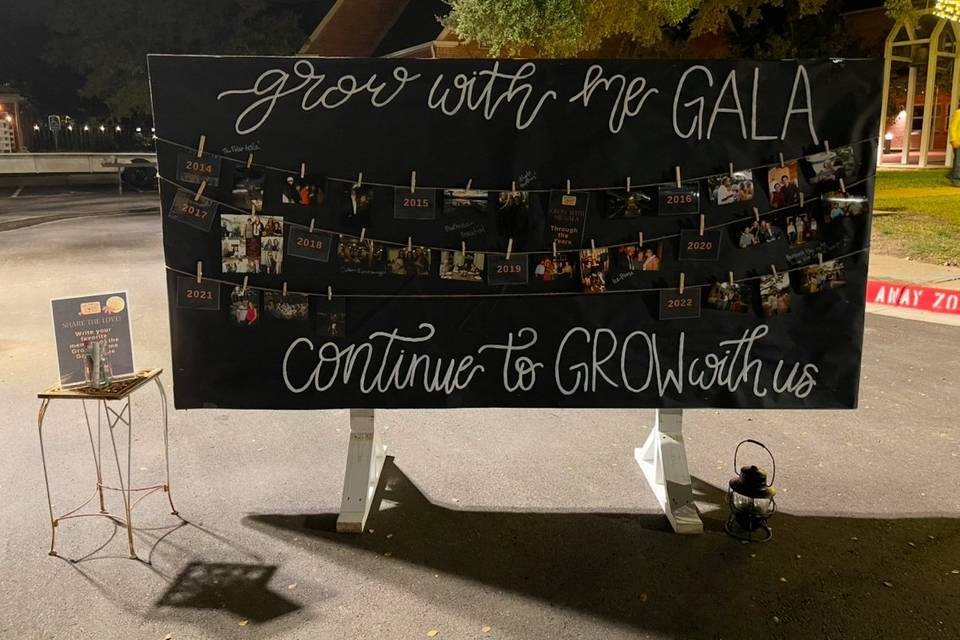 grow with me GALA
2014
2015
2016
2017
GROW WITH
ME GALA
Through
the
Years
2018
2019
2020
2021
2022
continue to GROW with us
SHARE THE LOVE!
Write your
favorite
AWAY ZO